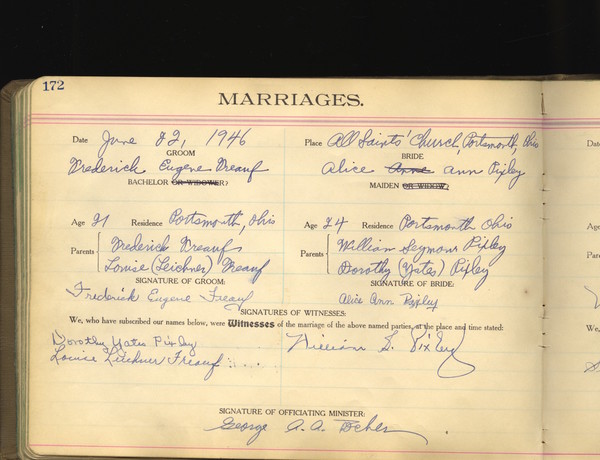 172
MARRIAGES.
Date June 22, 1946 Place All Saints' Church, Portsmouth, Ohio
GROOM BRIDE
Frederick Eugene Freauf Alice Anne Ann Pixley
BACHELOR OR WIDOWER? MAIDEN OR WIDOW?
Age 21 Residence Portsmouth, Ohio Age 24 Residence Portsmouth Ohio
Parents Frederick Freauf William Seymour Pixley
Louise (Leichner) Freauf Parents Dorothy (Yates) Pixley
SIGNATURE OF GROOM: SIGNATURE OF BRIDE:
Frederick Eugene Freauf Alice Ann Pixley
SIGNATURES OF WITNESSES:
We, who have subscribed our names below, were Witnesses of the marriage of the above named parties, at the place and time stated:
Dorothy Yates Pixley William S. Pixley
Louise Leichner Freauf
SIGNATURE OF OFFICIATING MINISTER:
George A. A.
Dat
Age
Parents